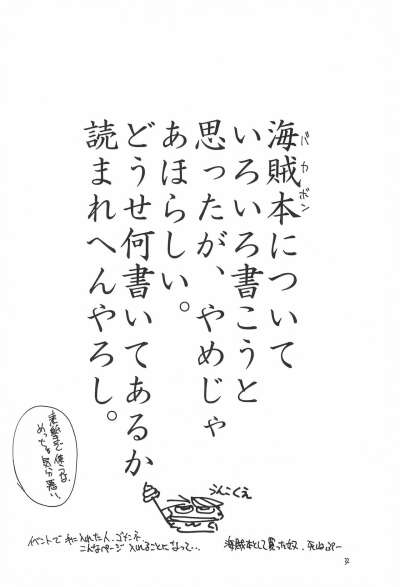 海賊本について
バカボン
いろいろ書こうと
思ったが、やめじゃ
あほらしい。
どうせ何書いてあるか
読まれへんやろし。
めっちゃ気分悪い。
うんこくえ
イベントで手に入れた人、ゴメンネ
こんなページ入れることになって…
海賊本として買った奴、死ねぷー